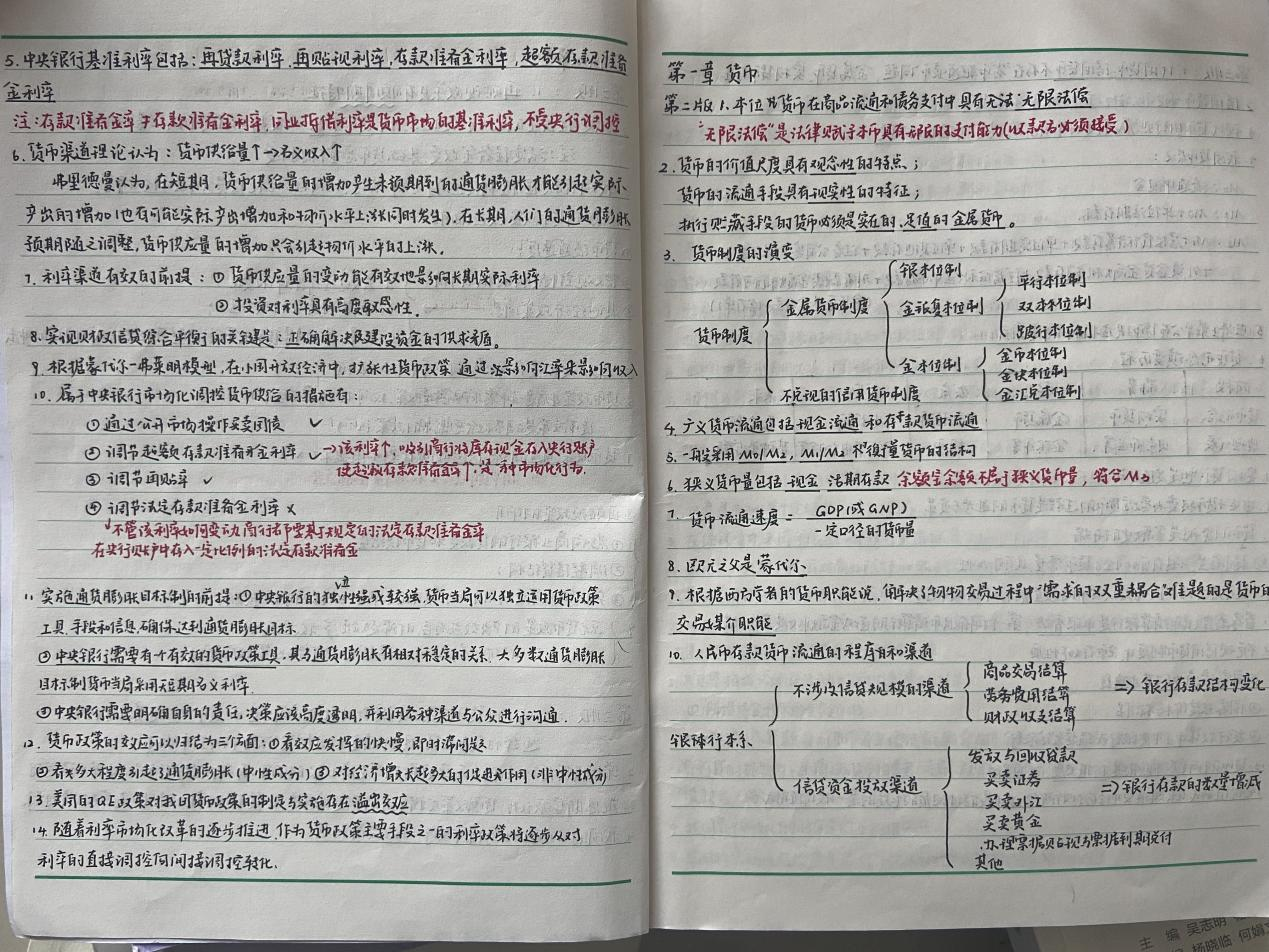 5.中央银行基准利率包括：再贷款利率.再贴现利率,存款准备金利率,超额存款准备
金利率
注:存款准备金率≠存款准备金利率,同业拆借利率是货币市场的基准利率,不受央行调控
6.货币渠道理论认为：货币供给量↑→名义收入↑
弗里德曼认为,在短期,货币供给量的增加产生未预期到的通货膨胀才能引起实际
产出的增加(也有可能实际产出增加和物价水平上涨同时发生).在长期,人们的通货膨胀
预期随之调整,货币供应量的增加只会引起物价水平的上涨.
7.利率渠道有效的前提：① 货币供应量的变动能有效地影响长期实际利率
② 投资对利率具有高度敏感性.
8.实现财政信贷综合平衡的关键是：正确解决建设资金的供求矛盾。
9.根据蒙代尔-弗莱明模型,在小国开放经济中,扩张性货币政策 通过影响汇率来影响收入
10.属于中央银行市场化调控货币供给的措施有：
①通过公开市场操作买卖国债 ✓
②调节超额存款准备金利率 ✓→该利率↑,吸引商行将库存现金存入央行账户
使超额存款准备金率↑,是一种市场化行为.
③调节再贴率 ✓
④调节法定存款准备金利率 ×
↓不管该利率如何变动,商行都要基于规定的法定存款准备金率
在央行账户中存入一定比例的法定存款准备金
11.实施通货膨胀目标制的前提:①中央银行的独立性强或较强,货币当局可以独立运用货币政策
工具.手段和信息,确保达到通货膨胀目标
②中央银行需要有个有效的货币政策工具,其与通货膨胀有相对稳定的关系.大多数通货膨胀
目标制货币当局采用短期名义利率.
③中央银行需要明确自身的责任,决策应该高度透明,并利用各种渠道与公众进行沟通.
12.货币政策的效应可以归结为三个方面：①看效应发挥的快慢,即时滞问题
②看多大程度引起了通货膨胀(中性成分) ③对经济增长起多大的促进作用(非中性成分)
13.美国的QE政策对我国货币政策的制定与实施存在溢出效应
14.随着利率市场化改革的逐步推进.作为货币政策主要手段之一的利率政策将逐步从对
利率的直接调控向间接调控转化.
第一章 货币
第二版 1.本位货币在商品流通和债务支付中具有无法 无限法偿
"无限法偿"是法律赋予本币具有无限的支付能力(收款者必须接受)
2.货币的价值尺度具有观念性的特点；
货币的流通手段具有现实性的特征；
执行贮藏手段的货币必须是实在的,足值的金属货币。
3. 货币制度的演变
货币制度
金属货币制度
银本位制
金银复本位制
平行本位制
双本位制
跛行本位制
金本位制
金币本位制
金块本位制
金汇兑本位制
不兑现的信用货币制度
4.广义货币流通包括现金流通 和存款货币流通
5.一般采用M0/M2,M1/M2来衡量货币的结构
6.狭义货币量包括 现金 活期存款 余额宝余额不属于狭义货币量,符合M2
7.货币流通速度= GDP(或GNP)
一定口径的货币量
8.欧元之父是蒙代尔
9.根据西方学者的货币职能说,解决了物物交易过程中"需求的双重耦合"难题的是货币的
交易媒介职能
10.人民币存款货币流通的程序和渠道
银行体系
不涉及信贷规模的渠道
商品交易结算
劳务费用结算
财政收支结算
=>银行存款结构变化
信贷资金投放渠道
发放与回收贷款
买卖证券
买卖外汇
买卖黄金
办理票据贴现与票据到期兑付
其他
=>银行存款的数量增减
主 编 吴志明
杨晓临 何娟